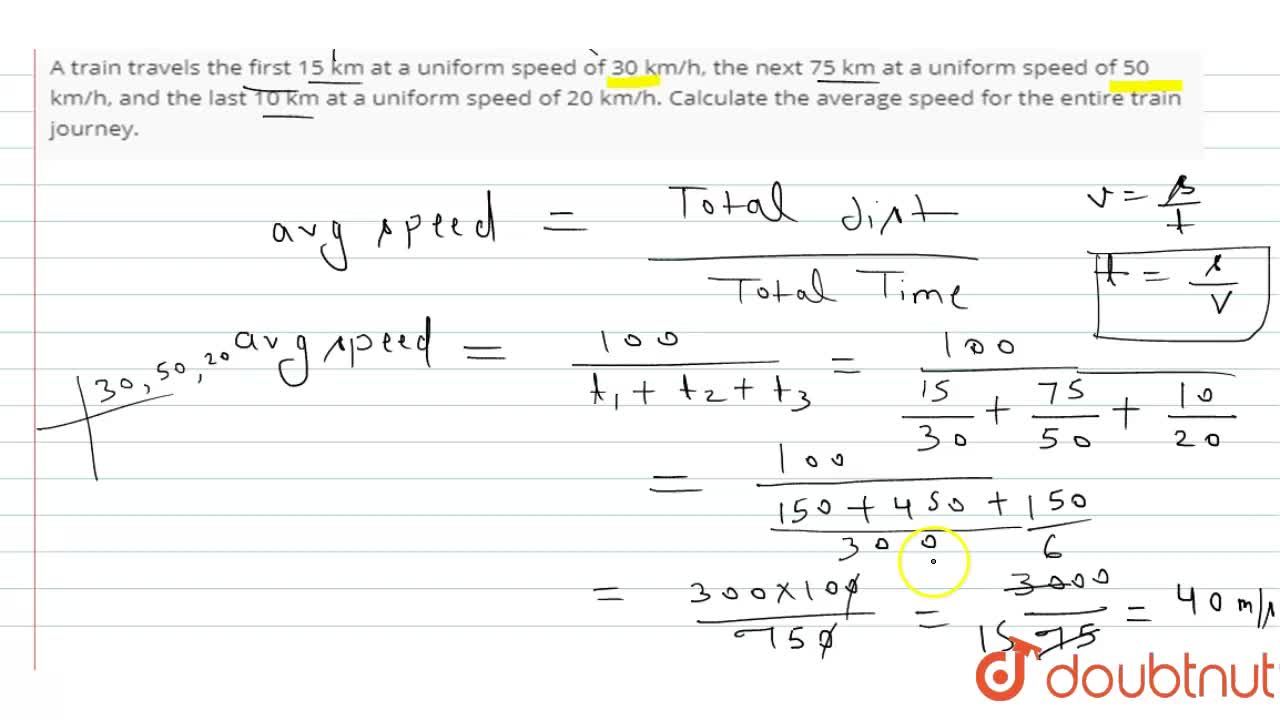 A train travels the first 15 km at a uniform speed of 30 km/h, the next 75 km at a uniform speed of 50
km/h, and the last 10 km at a uniform speed of 20 km/h. Calculate the average speed for the entire train
journey.
avg speed = Total dist / Total Time
v = s/t
t = s/v
30, 50, 20
avg speed = 100 / t₁ + t₂ + t₃ = 100 / 15/30 + 75/50 + 10/20
= 100 / 150 + 450 + 150 / 300
6
= 300×100 / 750 = 3000 / 75 = 40 m/s
15
doubtnut